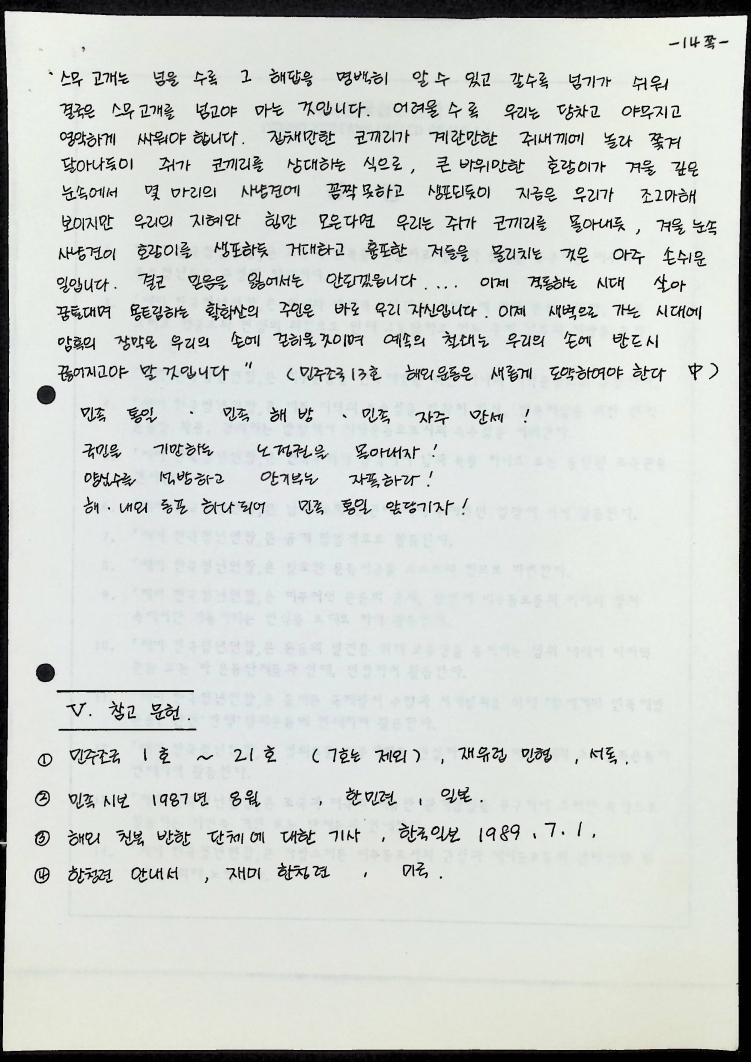 -14쪽-
스무고개는 넘을 수록 그 해답을 명백히 알 수 있고 갈수록 넘기가 쉬워
결국은 스무고개를 넘고야 마는 것입니다. 어려울수록 우리는 당차고 야무지고
영악하게 싸워야 합니다. 집채만한 코끼리가 계란만한 쥐새끼에 놀라 쫓겨
달아나듯이 쥐가 코끼리를 상대하는 식으로, 큰 바위만한 호랑이가 겨울 깊은
눈속에서 몇 마리의 사냥견에 꼼짝 못하고 생포되듯이 지금은 우리가 조그마해
보이지만 우리의 지혜와 힘만 모은다면 우리는 쥐가 코끼리를 몰아내듯, 겨울 눈속
사냥견이 호랑이를 생포하듯 거대하고 흉포한 저들을 물리치는 것은 아주 손쉬운
일입니다. 결코 믿음을 잃어서는 안되겠읍니다.... 이제 격동하는 시대 살아
꿈틀대며 용트림하는 활화산의 주인은 바로 우리 자신입니다. 이제 새벽으로 가는 시대에
암흑의 장막은 우리의 손에 걷히울 것이며 예속의 철쇄는 우리의 손에 반드시
끊어지고야 말 것입니다" (민주조국 13호 해외운동은 새롭게 도약하여야 한다 中)
민족 통일 · 민족 해방 · 민족 자주 만세!
국민을 기만하는 노정권을 몰아내자!
양심수를 석방하고 안기부는 자폭하라!
해·내외 동포 하나되어 민족 통일 앞당기자!
V. 참고 문헌.
① 민주조국 1호 ~ 21호 (7호는 제외), 재유럽 민협, 서독.
② 민족시보 1987년 8월, 한민련, 일본.
③ 해외 친북 반한 단체에 대한 기사, 한국일보 1989. 7. 1.
④ 한청련 안내서, 재미 한청련, 미국.